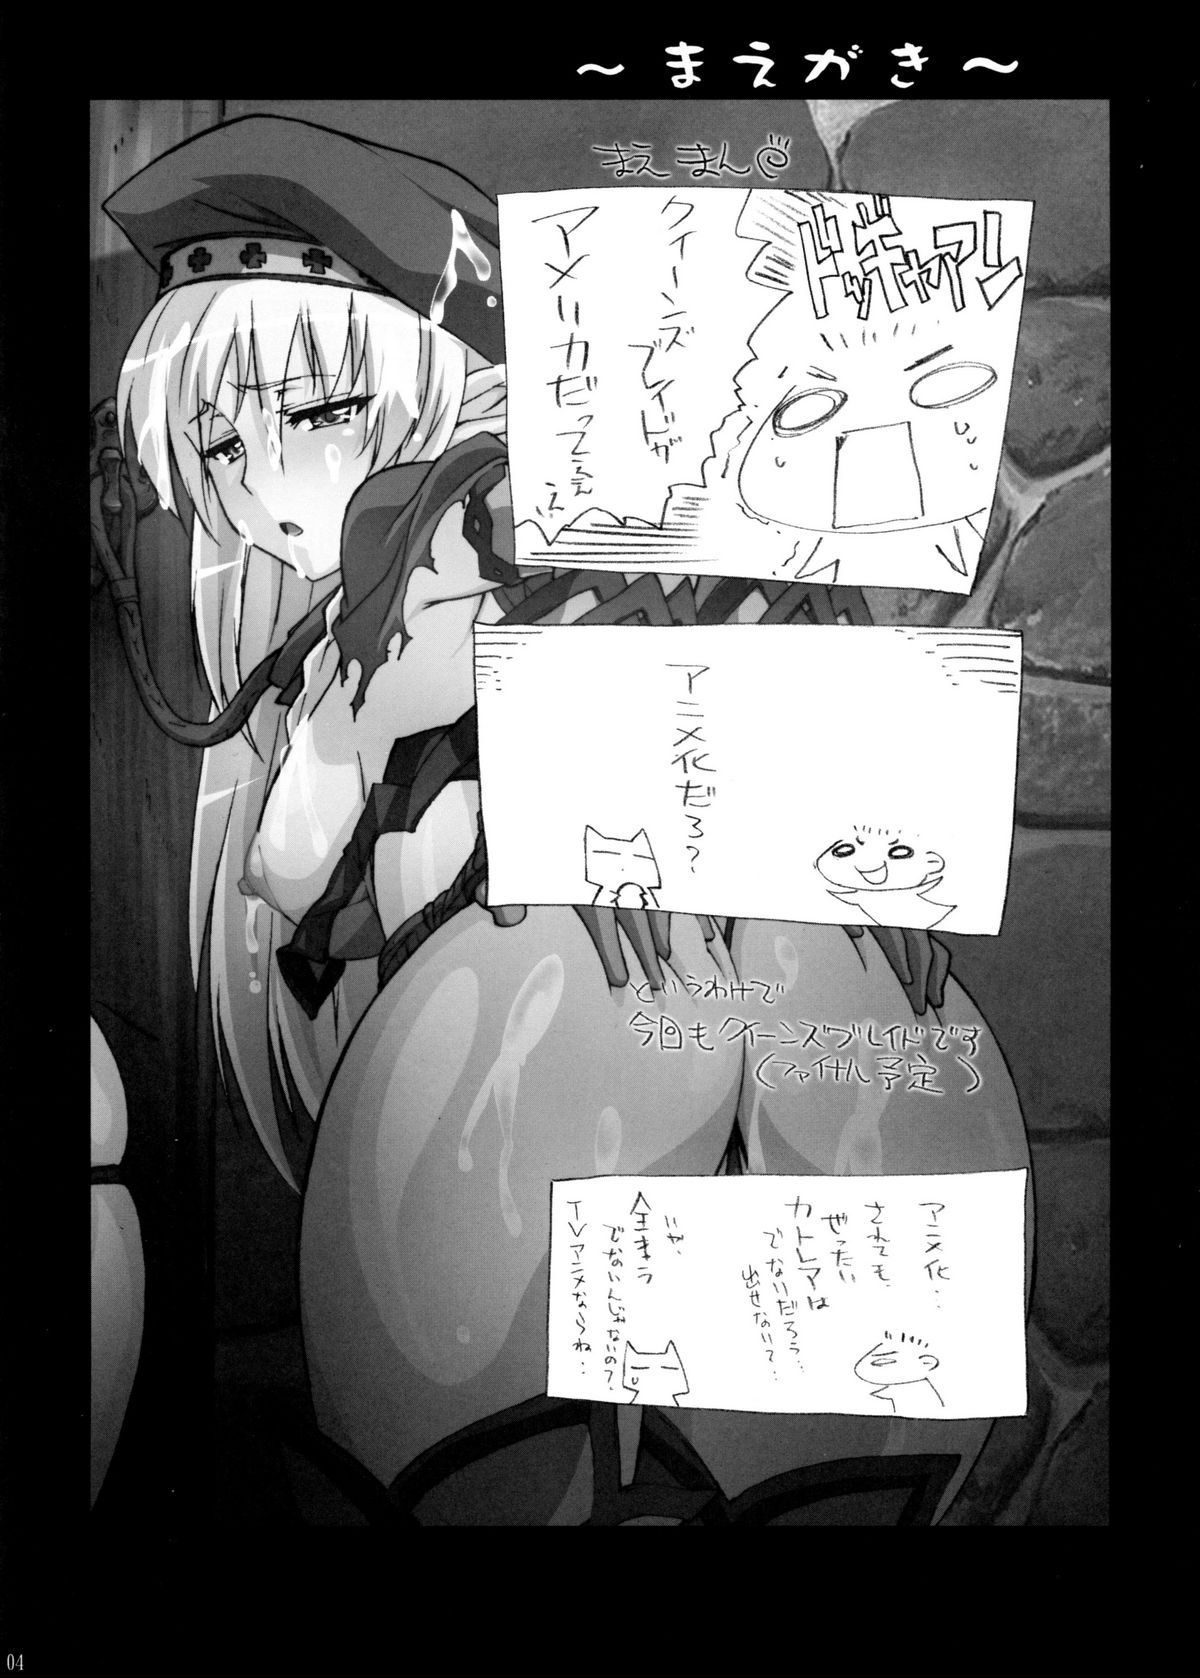 ～まえがき～
まえまん
ドッギャァアン
クィーンズ
ブレイドが
アメリカだってぇぇ
え
アニメ化だろ？
というわけで
今回もクイーンズブレイドです
（ファイナル予定）
アニメ化‥
されても、
ぜったい
カトレアは
でないだろう‥
出せないって‥
いや、
全まう
でないんじゃないの？
TVアニメならね‥
04